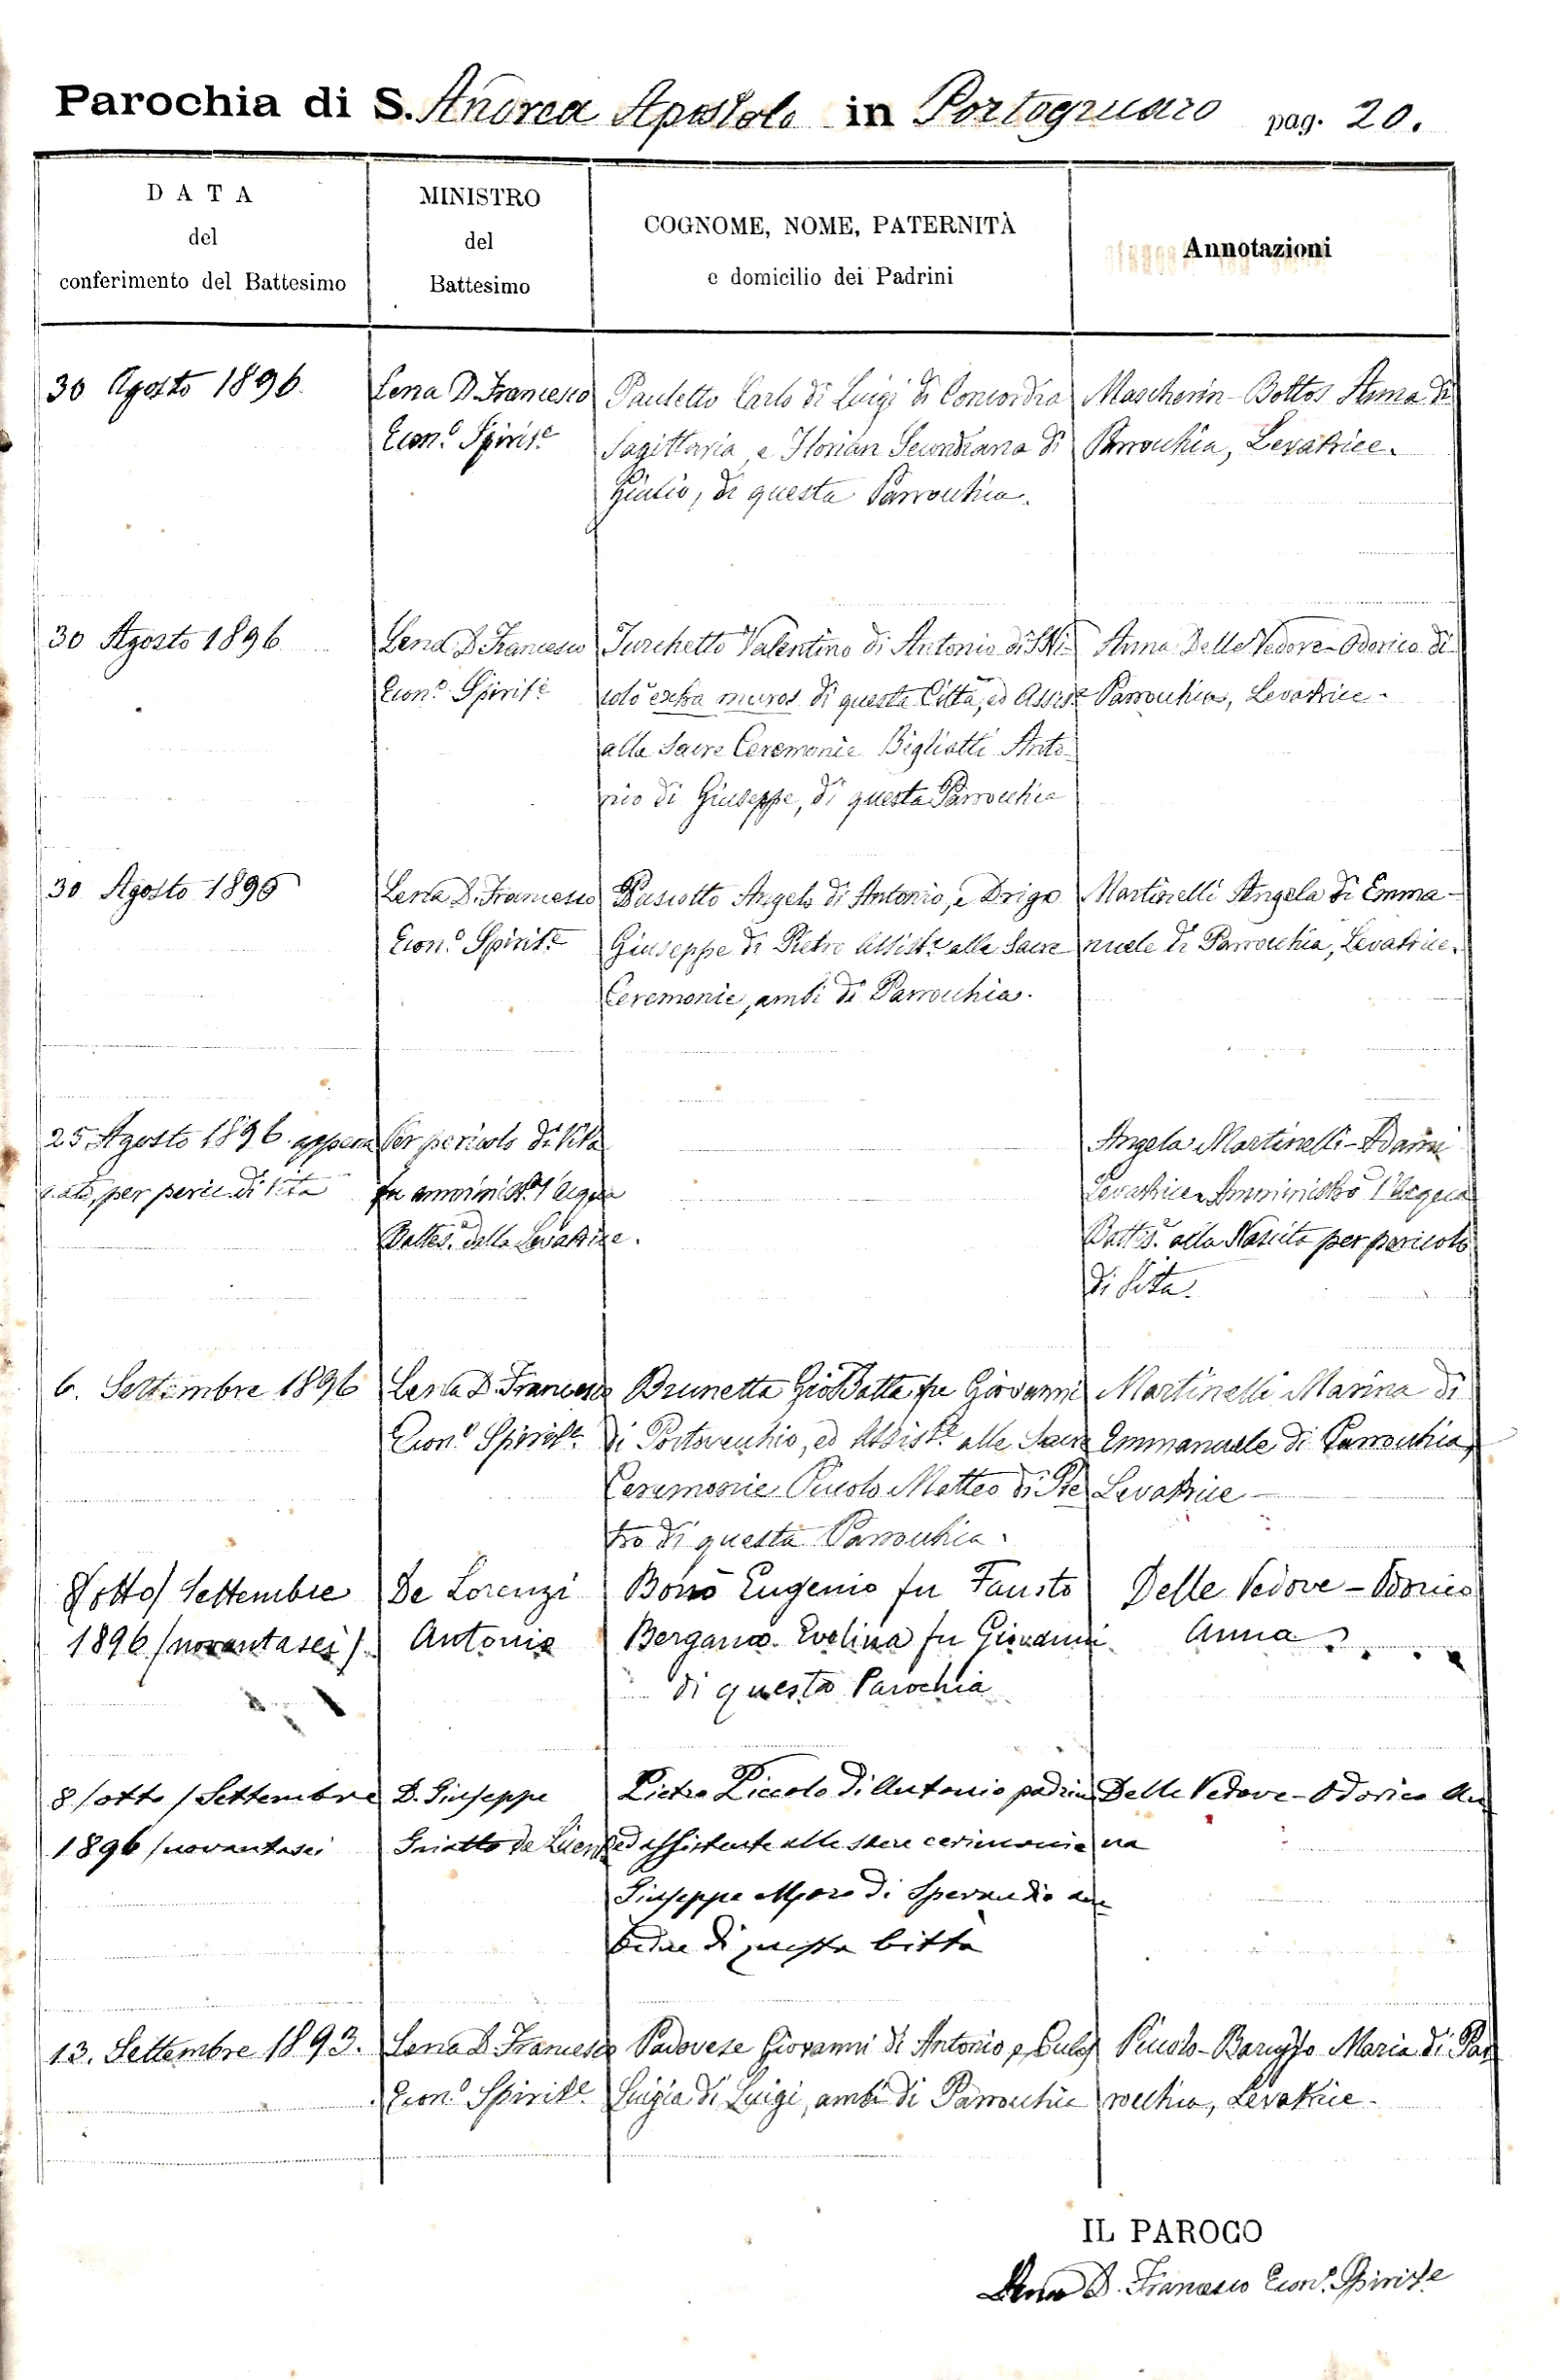 Parochia di S. Andrea Apostolo in Portogruaro pag. 20.
DATA
del
conferimento del Battesimo
MINISTRO
del
Battesimo
COGNOME, NOME, PATERNITÀ
e domicilio dei Padrini
Annotazioni
30 Agosto 1896.
Lena D. Francesco
Econ.º Spirit.e
Pauletto Carlo di Luigi di Concordia
Sagittaria, e Florian Secondiana di
Giulio, di questa Parrocchia.
Mascherin-Bottos Anna di
Parrocchia, Levatrice.
30 Agosto 1896
Lena D. Francesco
Econ.º Spirit.e
Turchetto Valentino di Antonio di S. Ni-
colò extra muros di questa Città, ed Assist.e
alle Sacre Ceremonie Bigliatti Anto-
nio di Giuseppe, di questa Parrocchia
Anna Delle Vedove-Odorico di
Parrocchia, Levatrice-
30 Agosto 1896
Lena D. Francesco
Econ.º Spirit.e
Pusiotto Angelo di Antonio, e Drigo
Giuseppe di Pietro Assist.e alle Sacre
Ceremonie, ambi di Parrocchia.
Martinelli Angela di Emma-
nuele di Parrocchia, Levatrice.
25 Agosto 1896. appena
nato, per peric. di Vita
Per pericolo di Vita
fu amminist.a l'acqua
Battes.e dalla Levatrice.
Angela Martinelli-
Levatrice Amministrò l'Acqua
Battes.e alla Nascita per pericolo
di Vita.
6. Settembre 1896
Lena D. Francesco
Econ.º Spirit.e
Brunetta Gio Batta fu Giovanni
di Portovecchio, ed Assist.e alle Sacre
Ceremonie Piccolo Matteo di Pie
tro di questa Parrocchia.
Martinelli Marina di
Emmanuele di Parrocchia,
Levatrice-
8/otto/ Settembre
1896 /novantasei/.
De Lorenzi
Antonio
Bonò Eugenio fu Fausto
Bergamo Evelina fu Giovanni
di questa Parochia
Delle Vedove-Odorico
Anna.
8 /otto/ Settembre
1896 /novantasei
D. Giuseppe
Pietro Piccolo di Antonio padrin
ed assistente alle sacre cerimonie
Giuseppe Moro di Sperandio am
bedue di questa Città
Delle Vedove-Odorico An
na
13. Settembre 1893.
Lena D. Francesco
Econ.º Spirit.e
Padovese Giovanni di Antonio, e
Luigia di Luigi, ambi di Parrocchia
Piccolo-Baruzzo Maria di Par
rocchia, Levatrice.
IL PAROCO
Lena D. Francesco Econ.º Spirit.e